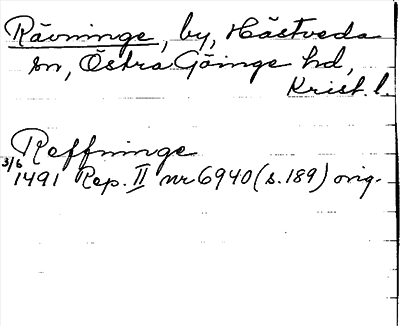 Rävninge, by, Hästveda
sn, Östra Göinge hd,
Krist. l.
Reffninge
3/6 1491 Rep. II nr 6940 (s. 189) orig.